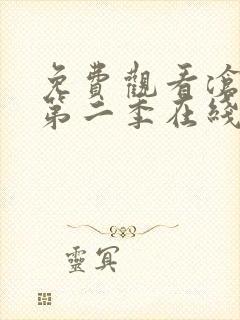 免費觀看滄
第二季在綫
靈冥